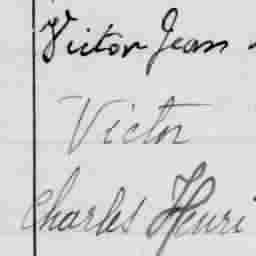 Victor Jean
Victor
Charles Henri